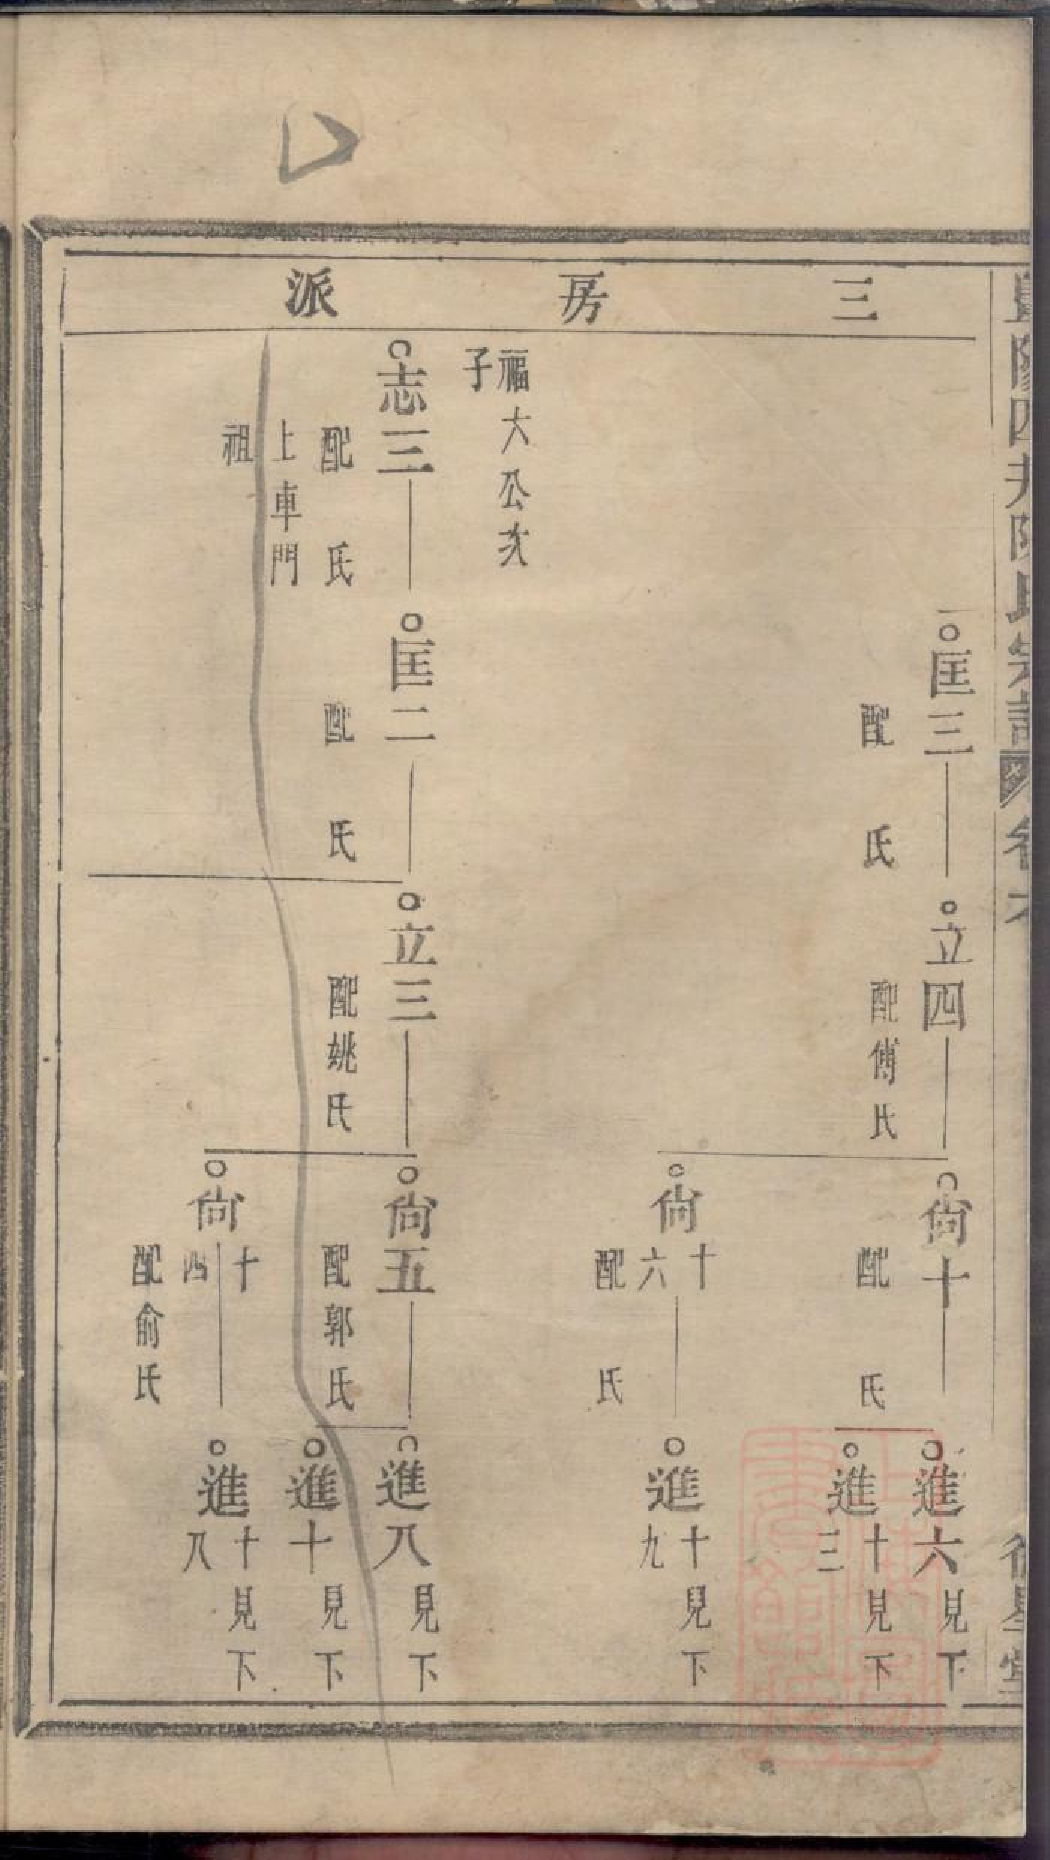 三房派
匡三
配 氏
立四
配傅氏
尙十
配 氏
進六見下
進十三見下
尙十六
配 氏
進十九見下
福大公次子
志三
配 氏
上車門祖
匡二
配 氏
立三
配姚氏
尙五
配郭氏
進八見下
進十見下
尙十四
配俞氏
進十八見下